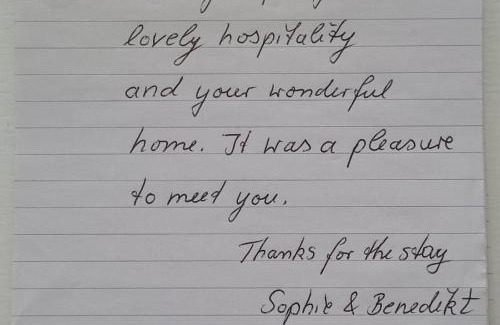 lovely hospitality
and your wonderful
home. It was a pleasure
to meet you.
Thanks for the stay
Sophie & Benedikt